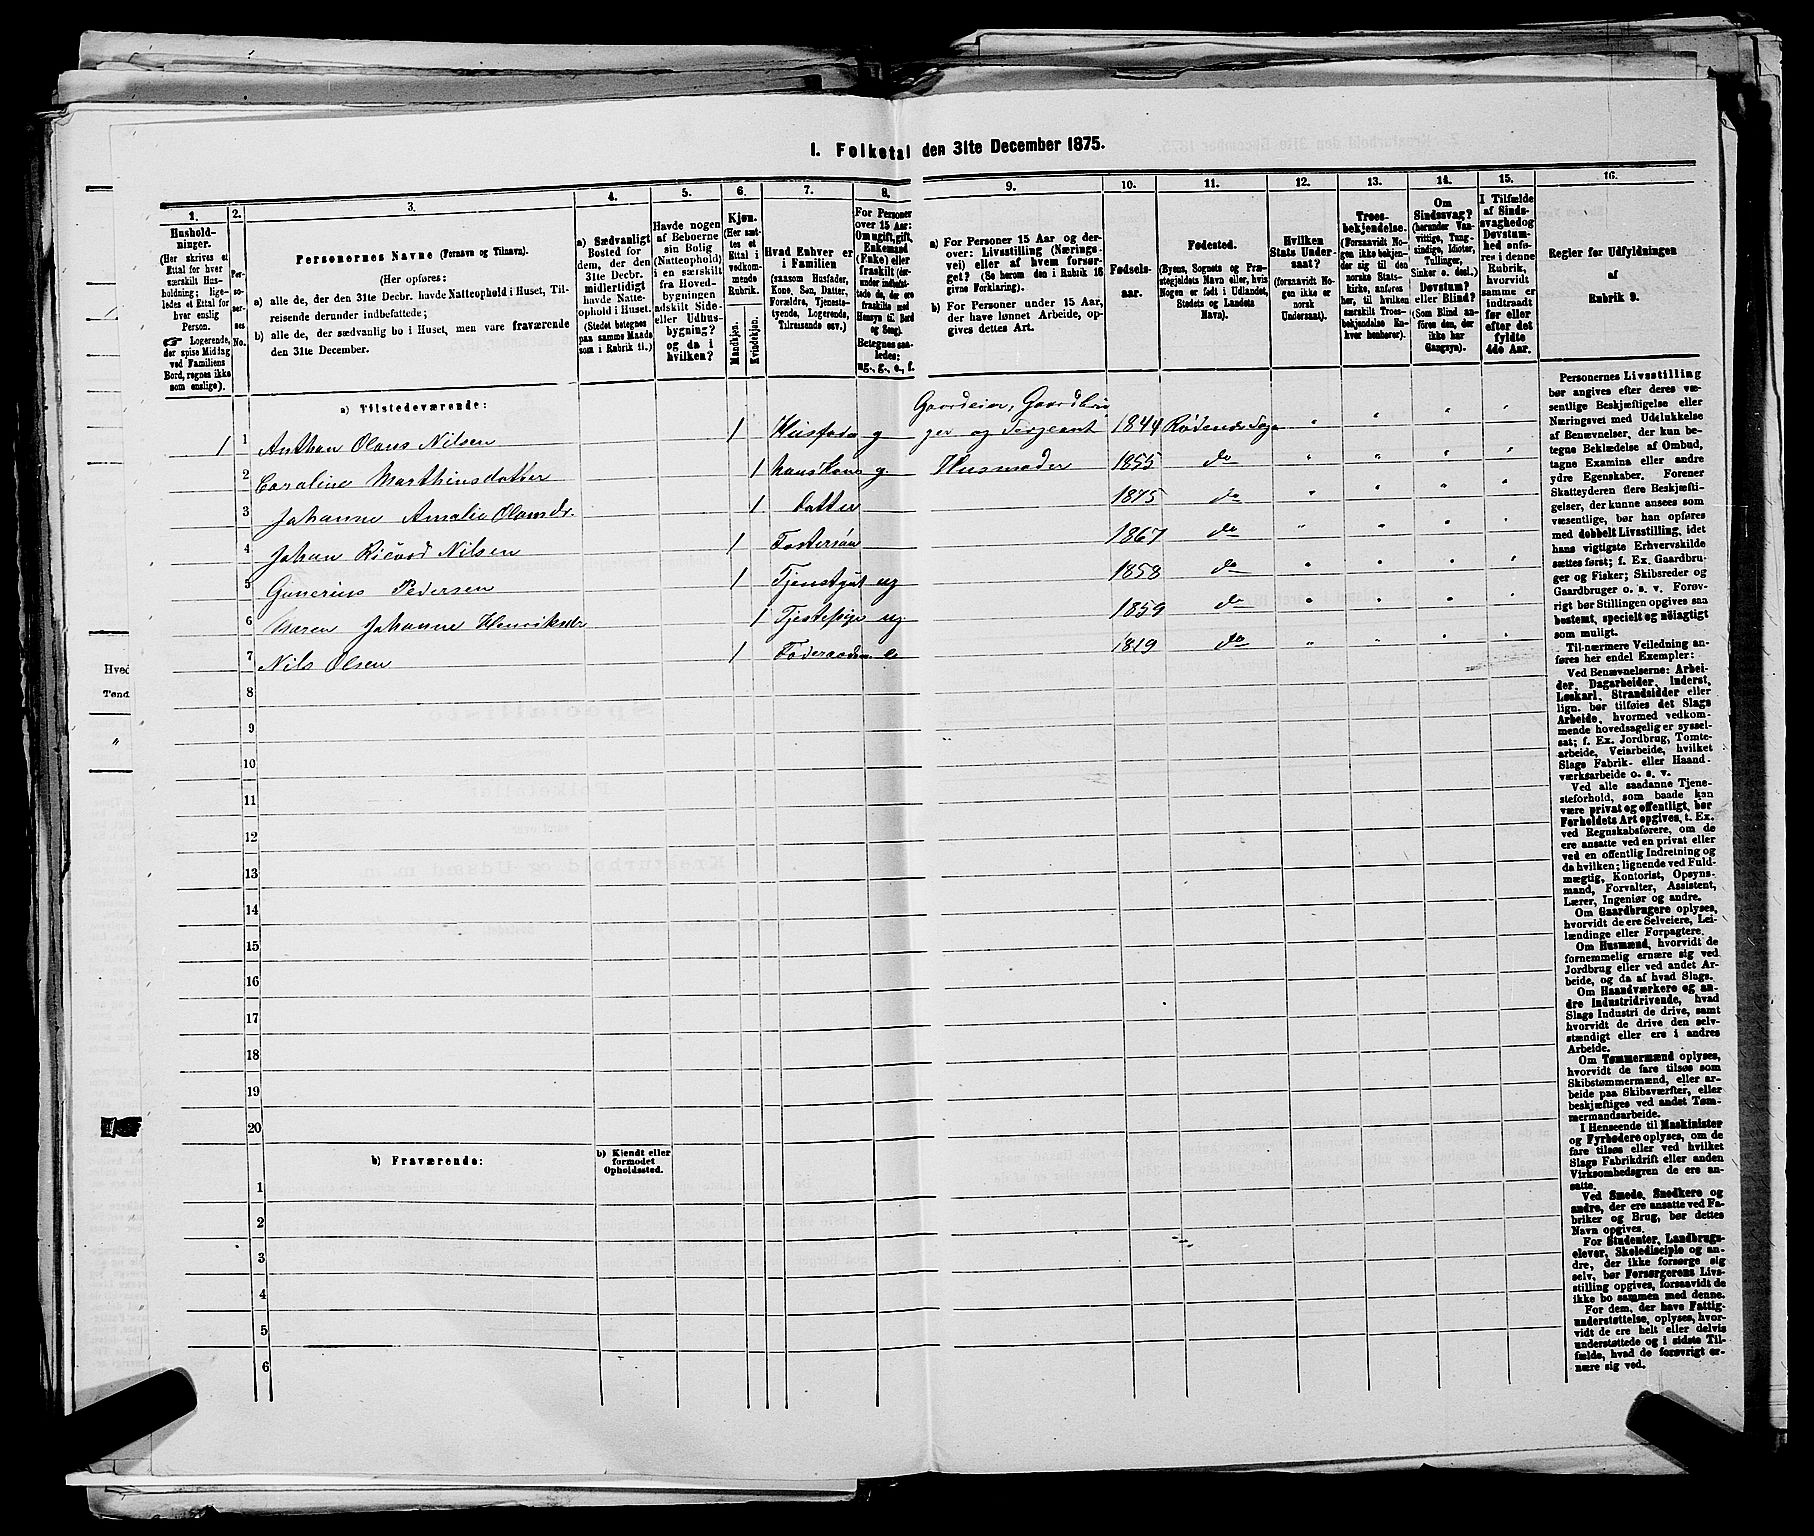 I. Folketal den 31te December 1875.
1. 2. 3. 4. 5. 6. 7. 8. 9. 10. 11. 12. 13. 14. 15. 16.
Hushold-
ninger.
(Her skrives et
Ettal for hver
særskilt Hus-
holdning; lige-
ledes et Ettal for
hver enslig
Person.
☞ Logerende,
der spise Middag
ved Familiens
Bord, regnes ikke
som enslige).
Per-
so-
ner-
nes
No.
Personernes Navne (Fornavn og Tilnavn).
(Her opføres:
a) alle de, der den 31te Decbr. havde Natteophold i Huset, Til-
reisende derunder indbefattede;
b) alle de, der sædvanlig bo i Huset, men vare fraværende
den 31te December.
a) Sædvanligt
Bosted for
dem, der den
31te Decbr.
midlertidigt
havde Natte-
ophold i Huset.
(Stedet betegnes
paa samme Maade
som i Rubrik 11.)
Havde nogen
af Beboerne
sin Bolig
(Natteophold)
i en særskilt
fra Hoved-
bygningen
adskilt Side-
eller Udhus-
bygning?
og da i
hvilken?
Kjøn.
(Her sæt-
tes et
Ettal i
vedkom-
mende
Rubrik.
Mandkjøn.
Kvindekjøn.
Hvad Enhver er
i Familien
(saasom Husfader,
Kone, Søn, Datter,
Forældre, Tjeneste-
tyende, Logerende,
Tilreisende osv.)
For Personer
over 15 Aar:
Om ugift, gift,
Enkemand
(Enke) eller
fraskilt (der-
under indbefat-
tede de, der ere
fraskilte med
Hensyn til Bord
og Seng).
Betegnes saa-
ledes:
ug., g., e., f.
a) For Personer 15 Aar og der-
over: Livsstilling (Nærings-
vei) eller af hvem forsør-
get? (Se herom den i Rubrik 16
givne Forklaring).
b) For Personer under 15 Aar,
der have lønnet Arbeide, op-
gives dettes Art.
Fødsels-
aar.
Fødested.
(Byens, Sognets og Præ-
stegjeldets Navn eller, hvis
Nogen er født i Udlandet,
Stedets og Landets
Navn).
Hvilken
Stats Under-
saat?
(forsaavidt No-
gen ikke er
norsk
Undersaat).
Troes-
bekjendelse.
(Forsaavidt No-
gen ikke bekjen-
der sig til den
norske Stats-
kirke, anføres
her, til hvilken
særskilt Troes-
bekjendelse En-
hver henhører).
Om
Sindssvag?
(herunder Van-
vittige, Tung-
sindige, Idioter,
Tullinger,
Sinker o. desl.)
Døvstum?
eller Blind?
(Som Blind an-
føres den, der
ikke har
Gangsyn).
I Tilfælde
af Sinds-
svaghed og
Døvstum-
hed anfø-
res i denne
Rubrik,
hvorvidt
samme er
indtraadt
før eller
efter det
fyldte
4de Aar.
Regler for Udfyldningen
af
Rubrik 9.
a) Tilstedeværende:
1 1 Anthon Olaus Nilsen 1 Husfader g Gaardeier, Gaardbru
ger og Sergeant 1844 Rødenæs Sogn " " " "
2 Caroline Marthinsdatter 1 hans Kone g. Husmoder 1855 do " " " "
3 Johanne Amalie Olausdr. 1 datter 1875 do " " " "
4 Johan Ricard Nilsen 1 Fostersøn 1867 do " " " "
5 Gunerius Pedersen 1 Tjenestgut ug 1858 do " " " "
6 Maren Johanne Henriksdr 1 Tjestepige ug 1859 do " " " "
7 Nils Olsen 1 Føderaadsm e 1819 do " " " "
8
9
10
11
12
13
14
15
16
17
18
19
20
b) Fraværende:
b) Kjendt eller
formodet
Opholdssted.
1
2
3
4
5
6
Personernes Livsstilling
bør angives efter deres væ-
sentlige Beskjæftigelse eller
Næringsvei med Udelukkelse
af Benævnelser, der kun be-
tegne Beklædelse af Ombud,
tagne Examina eller andre
ydre Egenskaber. Forener
Skatteyderen flere Beskjæfti-
gelser, der kunne ansees som
væsentlige, bør han opføres
med dobbelt Livsstilling, idet
hans vigtigste Erhvervskilde
sættes først; f. Ex. Gaardbru-
ger og Fisker; Skibsreder og
Gaardbruger o. s. v. Forøv-
rigt bør Stillingen opgives saa
bestemt, specielt og nøiagtigt
som muligt.
Til nærmere Veiledning an-
føres her endel Exempler:
Ved Benævnelserne: Arbei-
der, Dagarbeider, Inderst,
Løskarl, Strandsidder eller
lign. bør tilføies det Slags
Arbeide, hvormed vedkom-
mende hovedsagelig er syssel-
sat; f. Ex. Jordbrug, Tomte-
arbeide, Veiarbeide, hvilket
Slags Fabrik- eller Haand-
værksarbeide o. s. v.
Ved alle saadanne Tjene-
steforhold, som baade kan
være privat og offentligt, bør
Forholdets Art opgives, t. Ex.
ved Regnskabsførere, om de
ere ansatte ved en privat eller
ved en offentlig Indretning og
da hvilken; lignende ved Fuld-
mægtig, Kontorist, Opsyns-
mand, Forvalter, Assistent,
Lærer, Ingeniør og andre.
Om Gaardbrugere oplyses,
hvorvidt de ere Selveiere, Lei-
lændinge eller Forpagtere.
Om Husmænd, hvorvidt de
fornemmelig ernære sig ved
Jordbrug eller ved andet Ar-
beide, og da af hvad Slags.
Om Haandværkere og an-
dre Industridrivende, hvad
Slags Industri de drive, samt
hvorvidt de drive den selv-
stændigt eller ere i andres
Arbeide.
Om Tømmermænd oplyses,
hvorvidt de fare tilsøs som
Skibstømmermænd, eller ar-
beide paa Skibsværfter, eller
beskjæftiges ved andet Tøm-
mermandsarbeide.
I Henseende til Maskinister
og Fyrbødere oplyses, om de
fare tilsøs eller ved hvilket
Slags Fabrikdrift eller anden
Virksomhedsgren de ere an-
satte.
Ved Smede, Snedkere og
andre, der ere ansatte ved Fa-
briker og Brug, bør dettes
Navn opgives.
For Studenter, Landbrugs-
elever, Skoledisciple og an-
dre, der ikke forsørge sig
selv, bør Forsørgerens Livs-
stilling opgives, forsaavidt de
ikke bo sammen med denne.
For dem, der have Fattig-
understøttelse, oplyses, hvor-
vidt de ere helt eller delvis
understøttede og i sidste Til-
fælde, hvad de forøvrigt er-
nære sig ved.
Hved
Tønd
"